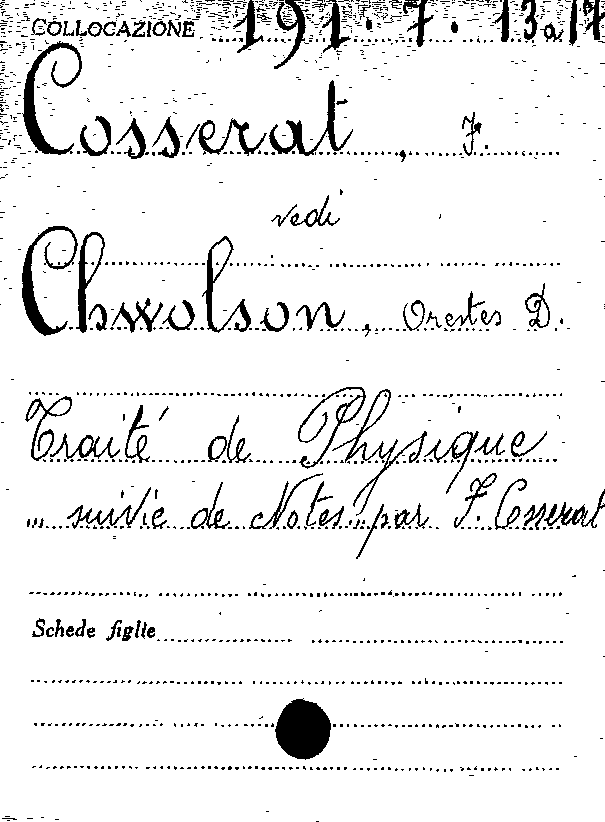 COLLOCAZIONE 191.7.13a17
Cosserat, F.
vedi
Chwolson, Orestes D.
Traité de Physique
... suivie de Notes.. par F. Cosserat
Schede figlie